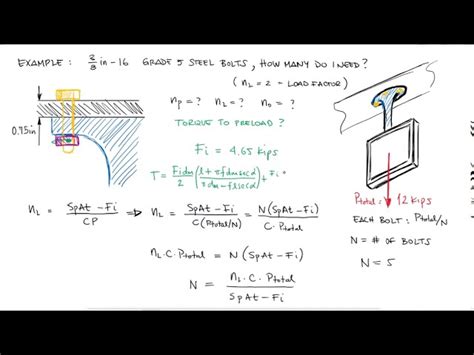 EXAMPLE : 3/8 in-16 GRADE 5 STEEL BOLTS, HOW MANY DO I NEED?
( nL = 2 - LOAD FACTOR )
nP = ? nL = ? no = ?
0.75in
TORQUE TO PRELOAD ?
Fi = 4.65 kips
T = Fi dm / 2 ( l + πf dm sec α / πdm - f l sec α ) + Fi
nL = SpAt - Fi / CP ⇒ nL = SpAt - Fi / C (Ptotal/N) = N (SpAt - Fi) / C · Ptotal
nL · C · Ptotal = N (SpAt - Fi)
N = nL · C · Ptotal / SpAt - Fi
Ptotal : 12 kips
EACH BOLT : Ptotal/N
N = # OF BOLTS
N = 5